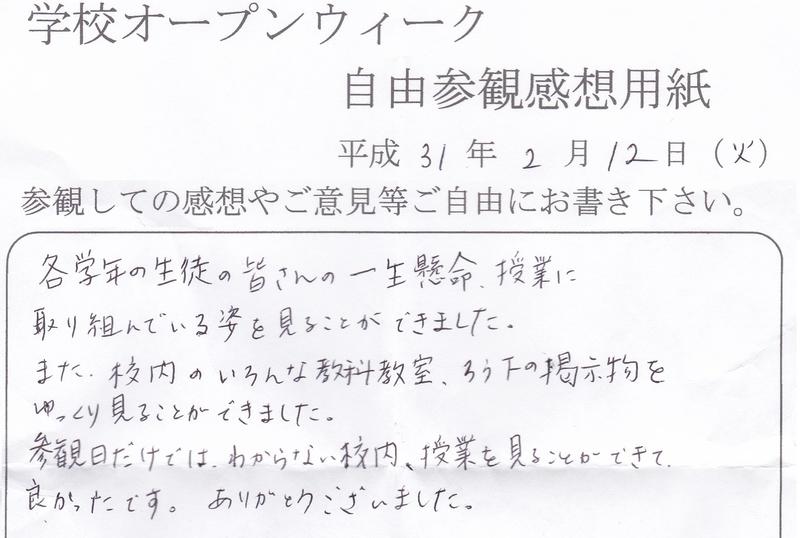 学校オープンウィーク
自由参観感想用紙
平成 31 年 2 月 12 日（火）
参観しての感想やご意見等ご自由にお書き下さい。
各学年の生徒の皆さんの一生懸命、授業に
取り組んでいる姿を見ることができました。
また、校内のいろんな教科教室、ろう下の掲示物を
ゆっくり見ることができました。
参観日だけでは、わからない校内、授業を見ることができて、
良かったです。ありがとうございました。